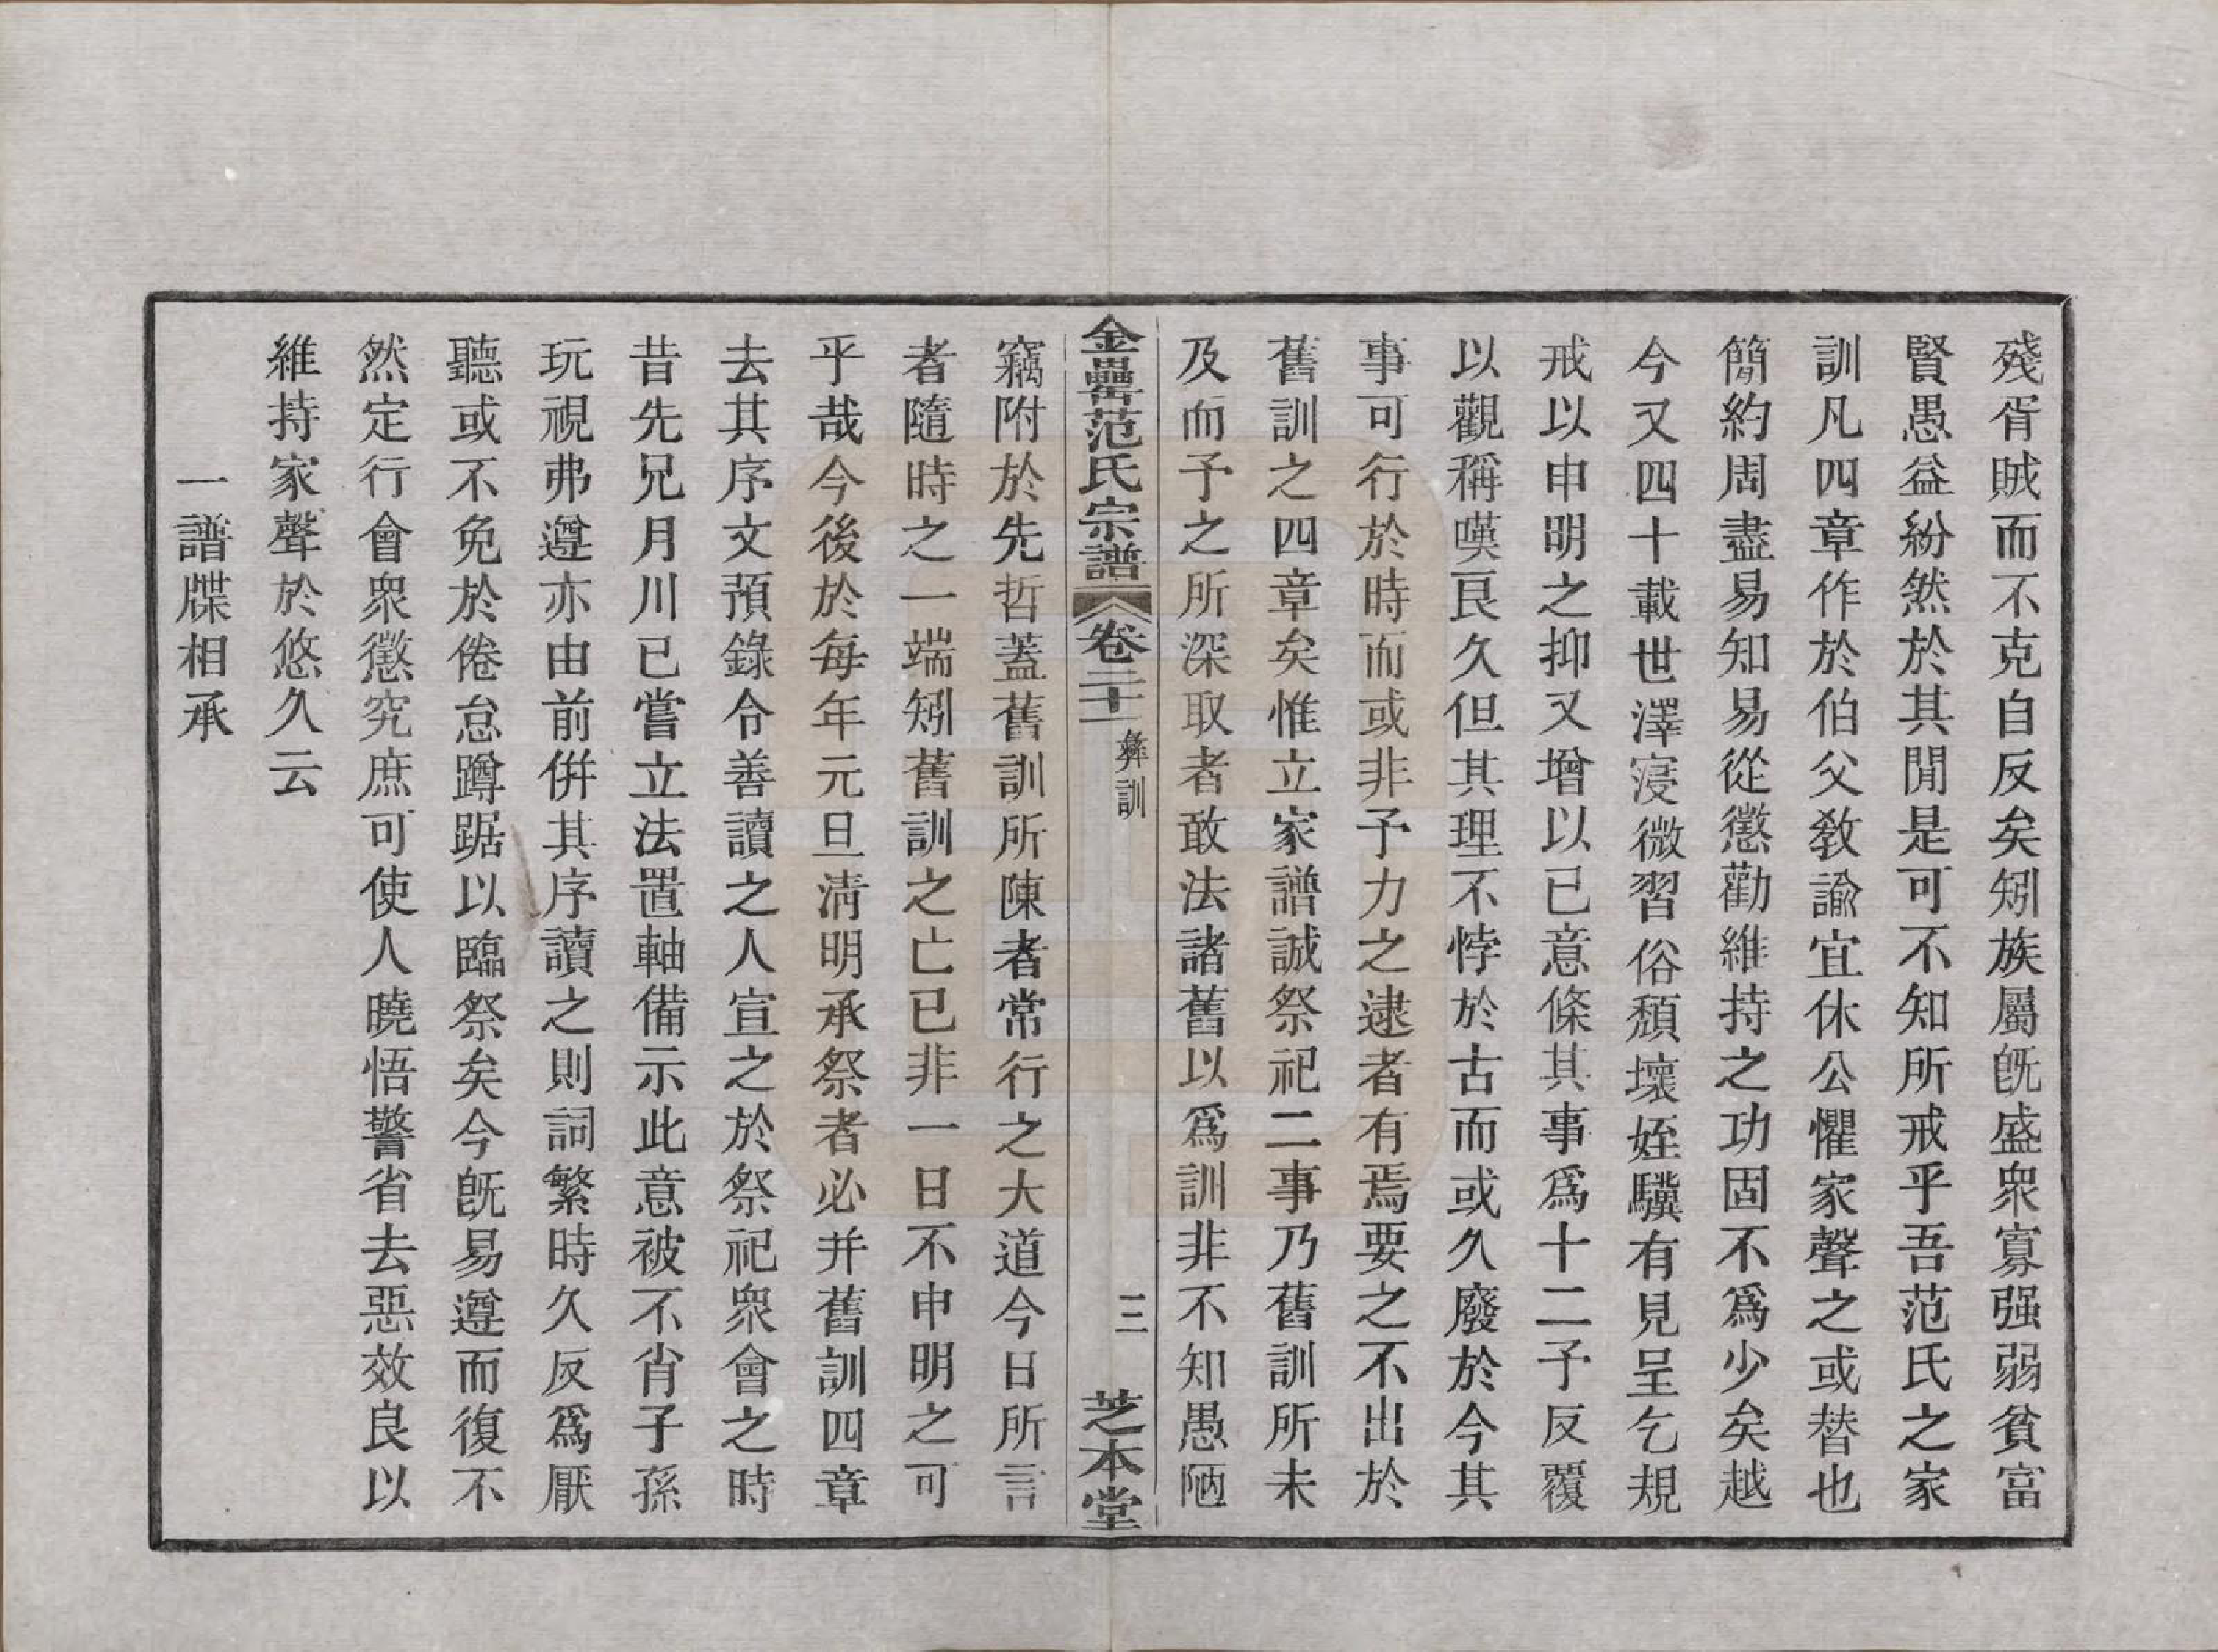 殘胥賊而不克自反矣矧族屬旣盛衆寡强弱貧富
賢愚益紛然於其閒是可不知所戒乎吾范氏之家
訓凡四章作於伯父敎諭宜休公懼家聲之或替也
簡約周盡易知易從懲勸維持之功固不爲少矣越
今又四十載世澤寖微習俗頹壞姪驥有見呈乞規
戒以申明之抑又增以已意條其事爲十二予反覆
以觀稱嘆艮久但其理不悖於古而或久廢於今其
事可行於時而或非予力之逮者有焉要之不出於
舊訓之四章矣惟立家譜誠祭祀二事乃舊訓所未
及而予之所深取者敢法諸舊以爲訓非不知愚陋
金罍范氏宗譜 卷二十一 彝訓 三 芝本堂
竊附於先哲蓋舊訓所陳者常行之大道今日所言
者隨時之一端矧舊訓之亡已非一日不申明之可
乎哉今後於每年元旦淸明承祭者必并舊訓四章
去其序文預錄令善讀之人宣之於祭祀衆會之時
昔先兄月川已嘗立法置軸備示此意被不肖子孫
玩視弗遵亦由前倂其序讀之則詞繁時久反爲厭
聽或不免於倦怠蹲踞以臨祭矣今旣易遵而復不
然定行會衆懲究庶可使人曉悟警省去惡效良以
維持家聲於悠久云
一譜牒相承